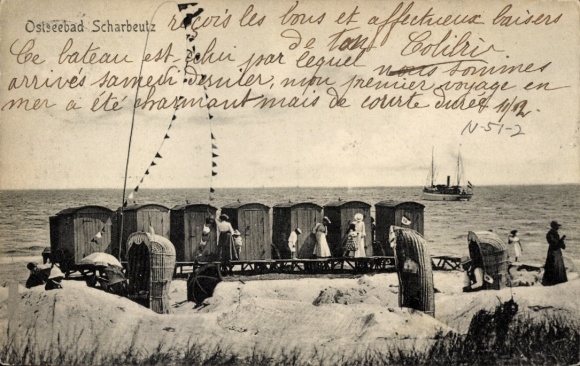 Ostseebad Scharbeutz
reçois les bons et affectueux baisers
de ton Colibri
Ce bateau est celui par lequel nous sommes
arrivés samedi dernier, mon premier voyage en
mer a été charmant mais de courte durée 1/2
N-51-2